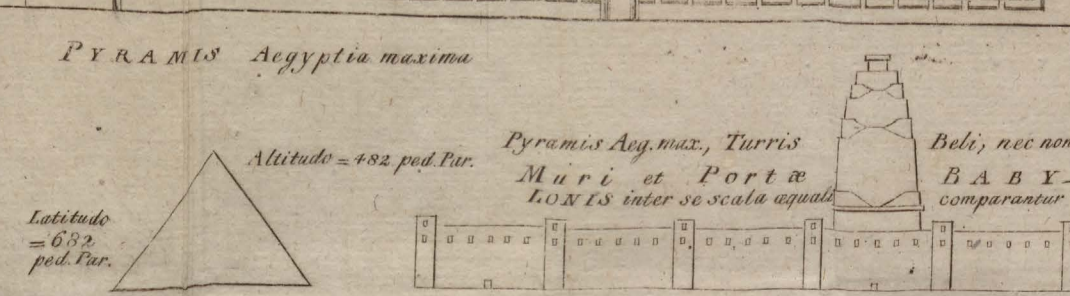 PYRAMIS Aegyptia maxima
Altitudo = 482 ped. Par.
Latitudo
= 682
ped. Par.
Pyramis Aeg. max., Turris Beli, nec non
Muri et Portæ BABY-
LONIS inter se scala æquali comparantur